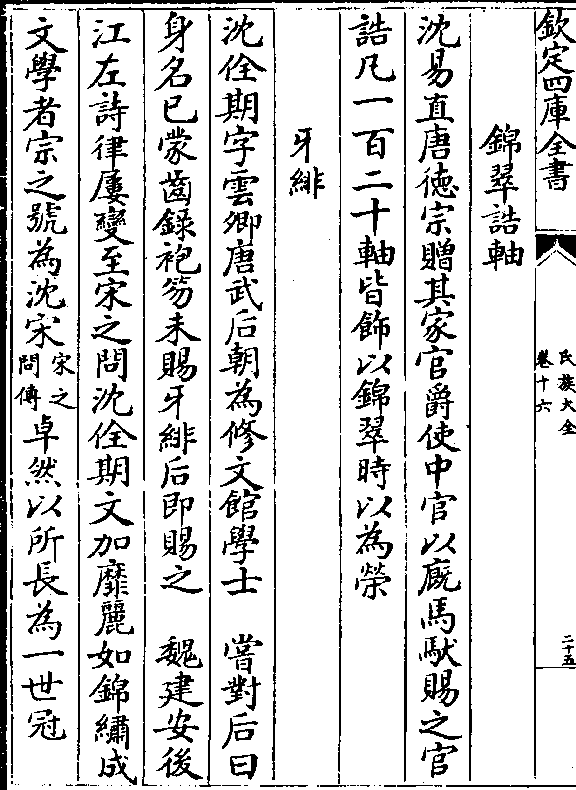 欽定四庫全書
氏族大全
卷十六
二十五
錦翠誥軸
沈易直唐德宗贈其家官爵使中官以廐馬馱賜之官
誥凡一百二十軸皆飾以錦翠時以為榮
牙緋
沈佺期字雲卿唐武后朝為修文館學士　嘗對后曰
身名已蒙齒錄袍笏未賜牙緋后即賜之　魏建安後
江左詩律屢變至宋之問沈佺期文加靡麗如錦繡成
文學者宗之號為沈宋宋之問傳卓然以所長為一世冠